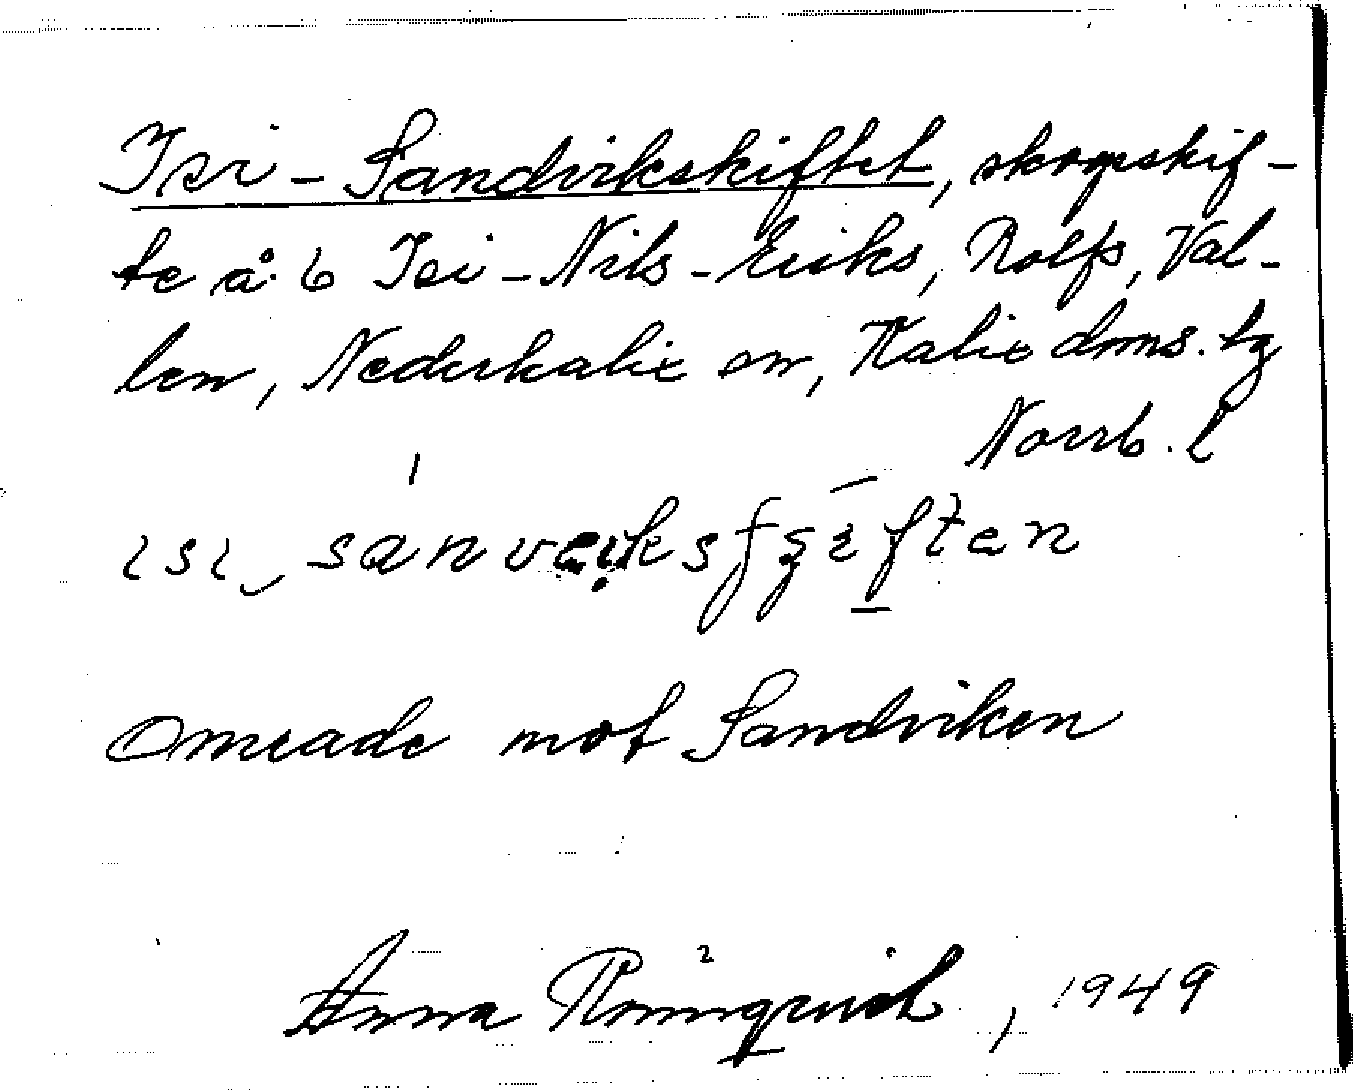 Isi-Sandvikskiftet, skogsskif-
te å: 6 Isi-Nils-Eriks, Rolfs, Val-
len, Nederkalix sn, Kalix doms. tg
Norrb. l
Område mot Sandviken
Anna Rönnqvist, 1949